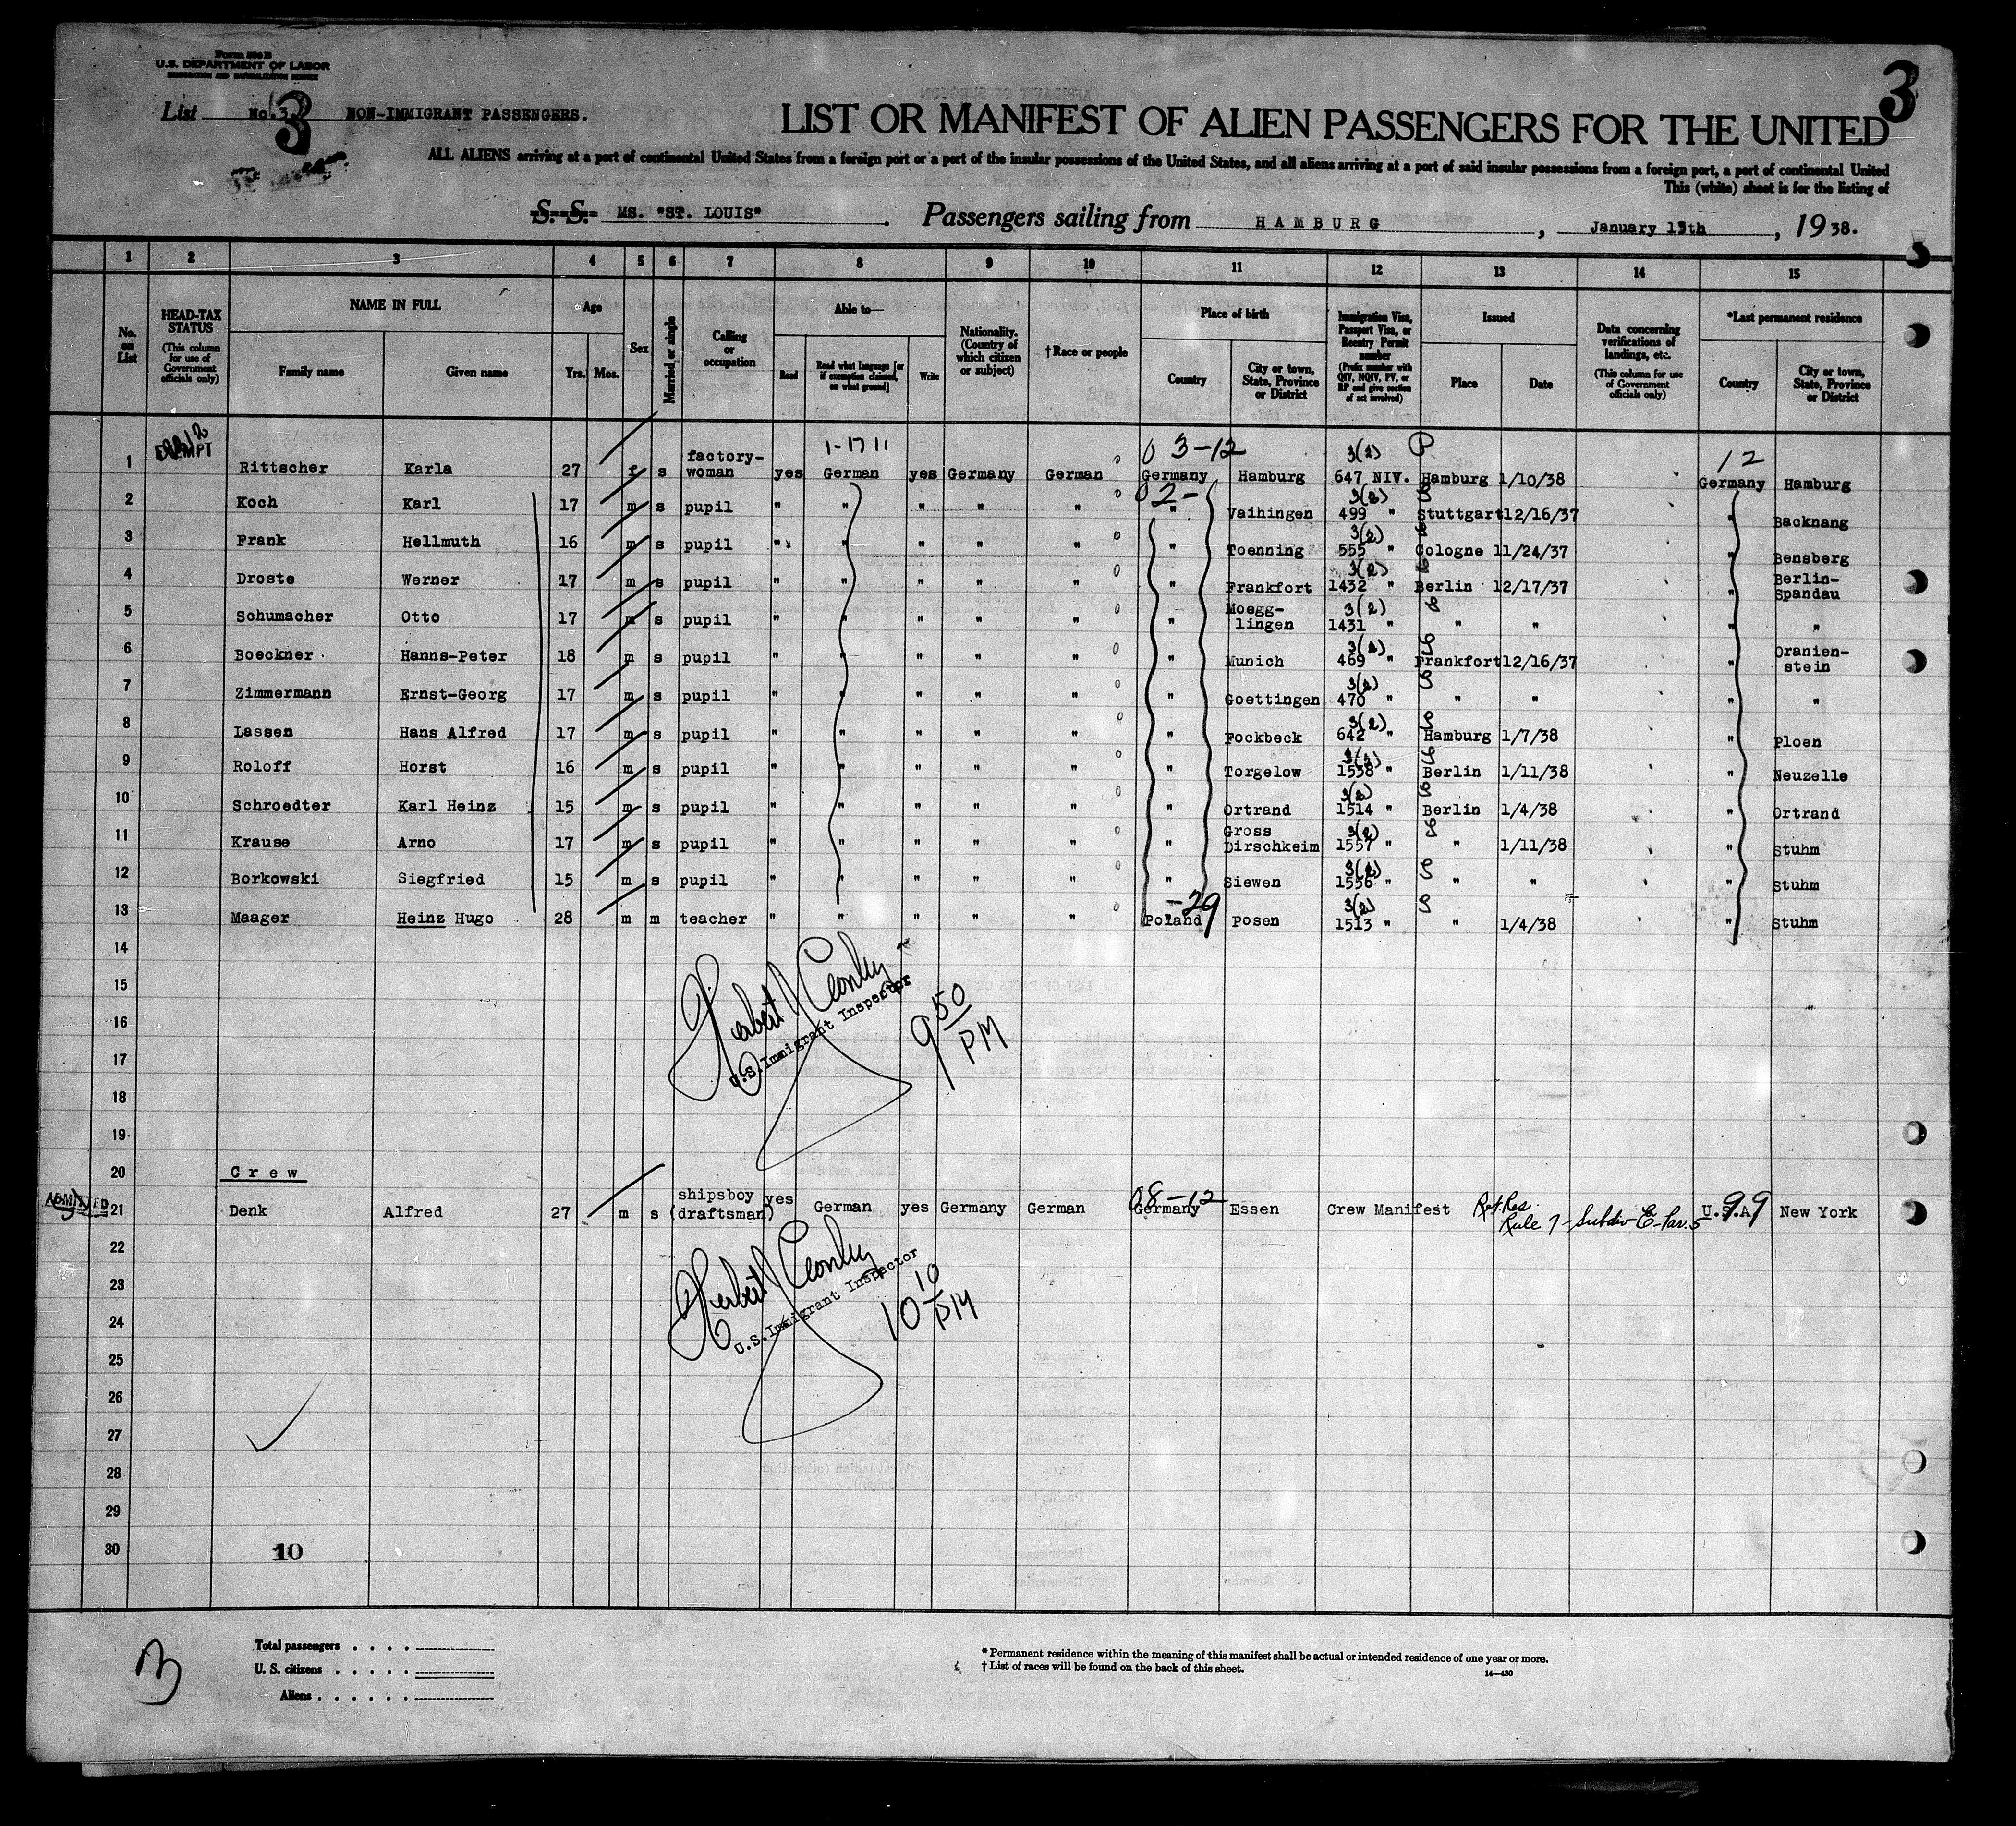 Form 500 B
U.S. DEPARTMENT OF LABOR
IMMIGRATION AND NATURALIZATION SERVICE
3
List No. 3 NON-IMMIGRANT PASSENGERS.
3
LIST OR MANIFEST OF ALIEN PASSENGERS FOR THE UNITED
ALL ALIENS arriving at a port of continental United States from a foreign port or a port of the insular possessions of the United States, and all aliens arriving at a port of said insular possessions from a foreign port, a port of continental United
This (white) sheet is for the listing of
S. S. MS. "ST. LOUIS". Passengers sailing from HAMBURG, January 15th, 1938.
1 2 3 4 5 6 7 8 9 10 11 12 13 14 15
No. on List
HEAD-TAX STATUS (This column for use of Government officials only)
NAME IN FULL
Family name Given name
Age
Yrs. Mos.
Sex
Married or single
Calling or occupation
Able to—
Read Read what language [or if exemption claimed, on what ground] Write
Nationality. (Country of which citizen or subject)
†Race or people
Place of birth
Country City or town, State, Province or District
Immigration Visa, Passport Visa, or Reentry Permit number (Prefix number with QIV, NQIV, PV, or RP and give section of act involved)
Issued
Place Date
Data concerning verifications of landings, etc. (This column for use of Government officials only)
*Last permanent residence
Country City or town, State, Province or District
1-17 11 03-12 3(2) P 12
1 EXEMPT Rittscher Karla 27 f s factory-woman yes German yes Germany German Germany Hamburg 647 NIV. Hamburg 1/10/38 Germany Hamburg
02- 3(2)
2 Koch Karl 17 m s pupil " " " " " " Vaihingen 499 " Stuttgart 12/16/37 " Backnang
3(2)
3 Frank Hellmuth 16 m s pupil " " " " " " Toenning 555 " Cologne 11/24/37 " Bensberg
3(2)
4 Droste Werner 17 m s pupil " " " " " " Frankfort 1432 " Berlin 12/17/37 " Berlin-Spandau
3(2)
5 Schumacher Otto 17 m s pupil " " " " " " Moegg-lingen 1431 " " " " "
3(2)
6 Boeckner Hanns-Peter 18 m s pupil " " " " " " Munich 469 " Frankfort 12/16/37 " Oranien-stein
3(2)
7 Zimmermann Ernst-Georg 17 m s pupil " " " " " " Goettingen 470 " " " " "
3(2)
8 Lassen Hans Alfred 17 m s pupil " " " " " " Fockbeck 642 " Hamburg 1/7/38 " Ploen
3(2)
9 Roloff Horst 16 m s pupil " " " " " " Torgelow 1558 " Berlin 1/11/38 " Neuzelle
3(2)
10 Schroedter Karl Heinz 15 m s pupil " " " " " " Ortrand 1514 " Berlin 1/4/38 " Ortrand
3(2)
11 Krause Arno 17 m s pupil " " " " " " Gross Dirschkeim 1557 " " 1/11/38 " Stuhm
3(2)
12 Borkowski Siegfried 15 m s pupil " " " " " " Siewen 1556 " " " " Stuhm
-29 3(2)
13 Maager Heinz Hugo 28 m m teacher " " " " " Poland Posen 1513 " " 1/4/38 " Stuhm
14
15
16
17
18
19
Herbert Conley
U.S. Immigrant Inspector
9 50 PM
20 Crew
08-12
ADMITTED 21 Denk Alfred 27 m s shipsboy (draftsman) yes German yes Germany German Germany Essen Crew Manifest Ret. Res. Rule 7-Subdiv E-Par. 5 U.S.A. 99 New York
22
23
24
25
26
27
28
29
30 10
Herbert Conley
U.S. Immigrant Inspector
10 10 PM
Total passengers
U. S. citizens
Aliens
* Permanent residence within the meaning of this manifest shall be actual or intended residence of one year or more.
† List of races will be found on the back of this sheet.
14—430